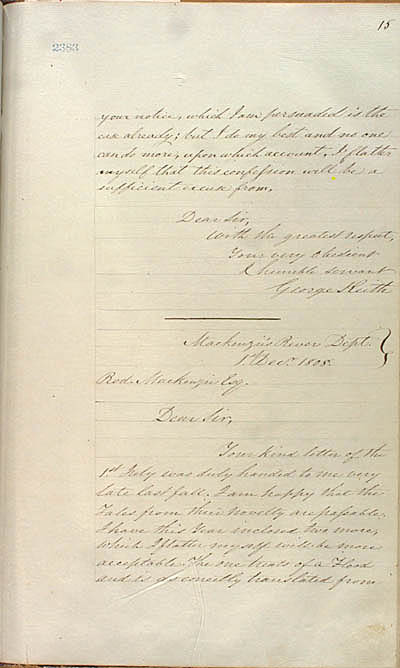 15
2383
your notice, which I am persuaded is the
case already; but I do my best and no one
can do more, upon which account, I flatter
myself that this confession will be a
sufficient excuse from,
Dear Sir,
With the greatest respect,
Your very obedient
& humble servant
George Keith
Mackenzie's River Dept.
1st Decr. 1808.
Rod. Mackenzie Esq.
Dear Sir,
Your kind letter of the
1st July was duly handed to me very
late last fall. I am happy that the
Tales from their novelty are passable.
I have this Year inclosed two more,
which I flatter myself will be more
acceptable. The one treats of a Flood
and is as correctly translated from